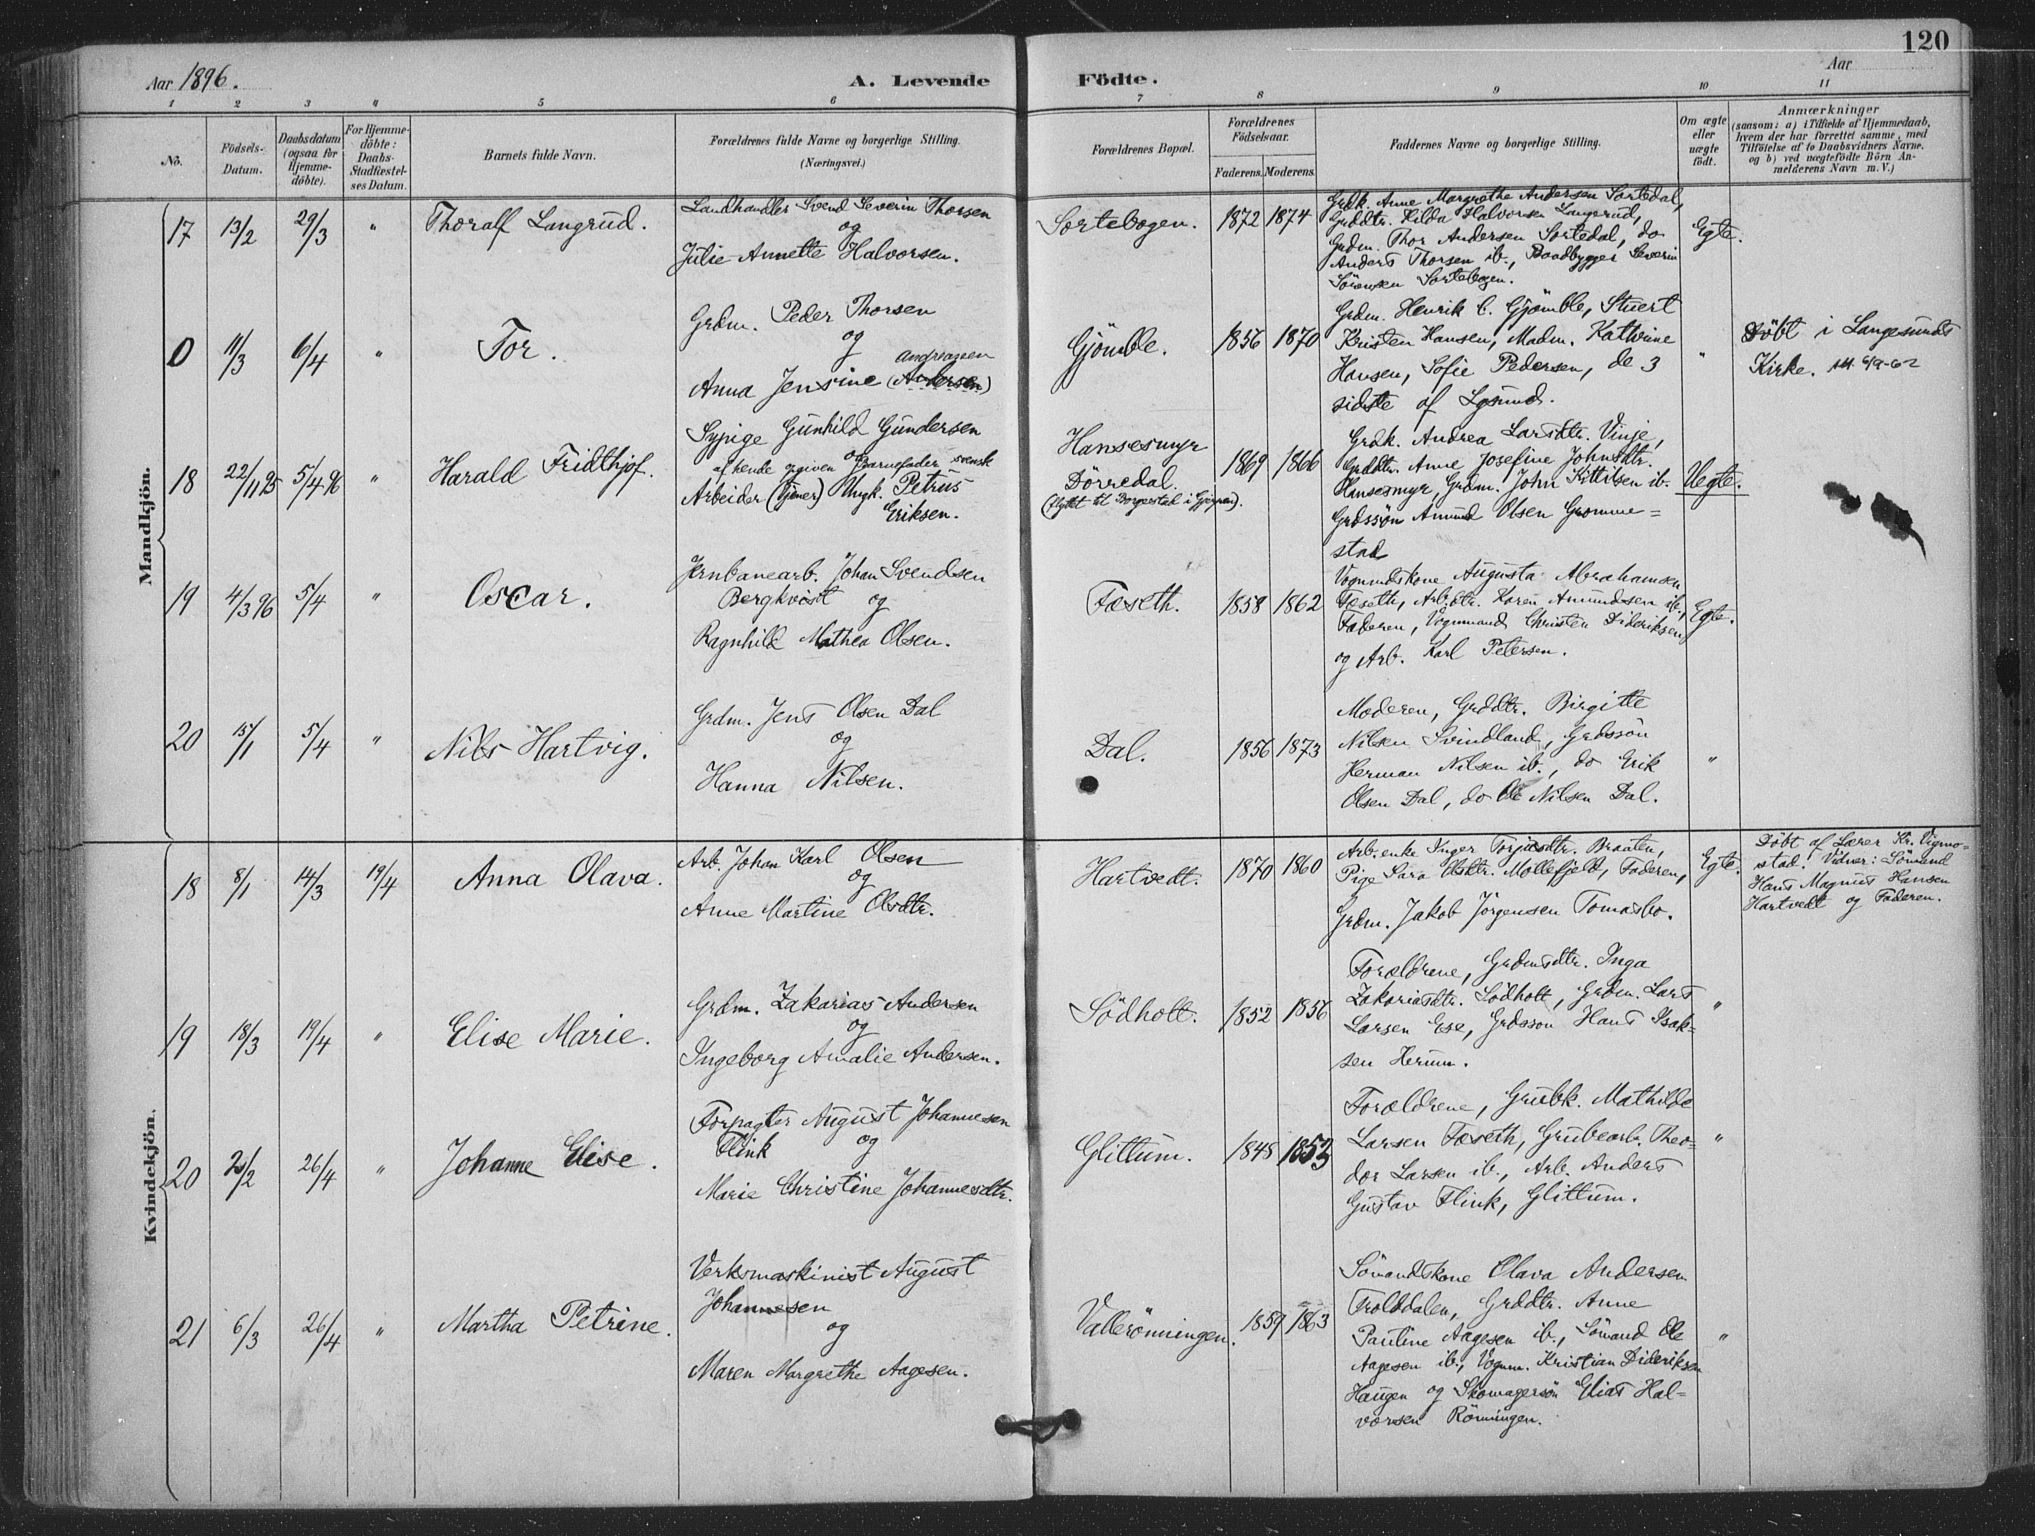 120
Aar 1896.
A. Levende Födte.
Aar
1 2 3 " 5 6 7 8 9 10 11
No.
Födsels-Datum.
Daabsdatum (ogsaa for Hjemme-döbte).
For Hjemme-döbte: Daabs-Stadfæstel-ses Datum.
Barnets fulde Navn.
Forældrenes fulde Navne og borgerlige Stilling. (Næringsvei.)
Forældrenes Bopæl.
Forældrenes Födselsaar.
Faderens. Moderens.
Faddernes Navne og borgerlige Stilling.
Om ægte eller uægte födt.
Anmærkninger
(saasom: a) i Tilfælde af Hjemmedaab,
hvem der har forrettet samme, med
Tilföielse af to Daabsvidners Navne.
og b) ved uægtefödte Börn An-
melderens Navn m. V.)
Mandkjön.
17 13/2 29/3 " Thoralf Langrud.
Landhandler Svend Severin Thorsen
og
Julie Annette Halvorsen.
Sortebogen. 1872 1874
Grdk. Anne Margrethe Andersen Sortedal,
Grddtr. Hilda Halvorsen Langerud,
Grdm. Thor Andersen Sortedal, do
Anders Thorsen ib., Baadbygger Severin
Sörensen Sortebogen.
Egte.
0 11/3 6/4 " Tor.
Grdm. Peder Thorsen
og
Andreassen
Anna Jensine (Andersen)
Gjömble. 1856 1870
Grdm. Henrik C. Gjömble, Stuert
Kristen Hansen, Madm. Kathrine
Hansen, Sofie Pedersen, de 3
sidste af Lgsund.
"
Döbt i Langesunds
Kirke. 6/9-62
18 22/11 95 5/4 96 " Harald Fridthjof.
Sypige Gunhild Gundersen
og
af hende opgiven Barnefader svensk
Arbeider (tjener) Ungk. Petrus
Eriksen.
Hansesmyr
Dörredal.
(flyttet til Borgestad i Gjerpen).
1869 1866
Grdk. Andrea Larsdtr. Vinje,
Grddtr. Anne Josefine Johnsdtr.
Hansesmyr, Grdm. John Kittilsen ib.
Grdssön Amund Olsen Gromme=
stad
Uegte.
19 4/3 96 5/4 " Oscar.
Jernbanearb. Johan Svendsen
Bergkvist og
Ragnhild Mathea Olsen.
Fæseth. 1858 1862
Vognmdskone Augusta Abrahamsen
Fæseth, Arbdtr. Karen Amundsen ib.,
Faderen, Vognmand Christen Dideriksen
og Arb. Karl Petersen.
Egte.
20 15/1 5/4 " Nils Hartvig.
Grdm. Jens Olsen Dal
og
Hanna Nilsen.
Dal. 1856 1873
Moderen, Grddtr. Birgitte
Nilsen Svindland, Grdssön
Herman Nilsen ib., do Erik
Olsen Dal, do Ole Nilsen Dal.
"
Kvindekjön.
18 8/1 14/3 19/4 Anna Olava.
Arb. Johan Karl Olsen
og
Anne Martine Olsdtr.
Hartvedt. 1870 1860
Arb.enke Inger Torjusdtr. Braaten,
Pige Sara Olsdtr. Mollefjeld, Faderen,
Grdm. Jakob Jörgensen Tomasbo.
Egte.
Döbt af Lærer Kr. Vigmo-
stad. Vidner: Sömand
Hans Magnus Hansen
Hartvedt og Faderen.
19 18/3 19/4 " Elise Marie.
Grdm. Zakarias Andersen
og
Ingeborg Amalie Andersen.
Södholt. 1852 1856
Forældrene, Grdmsdtr. Inga
Zakariasdtr. Södholt, Grdm. Lars
Larsen Ese, Grdsson Hans Isak-
sen Herum.
"
20 25/2 26/4 " Johanne Elise.
Forpagter August Johannesen
Flink og
Marie Christine Johannesdtr.
Glittum. 1848 1853
Forældrene, Grubk. Mathilde
Larsen Fæseth, Grubearb. Theo-
dor Larsen ib., Arb. Anders
Gustav Flink, Glittum.
"
21 6/3 26/4 " Martha Petrine.
Verksmaskinist August
Johannesen
og
Maren Margrethe Aagesen.
Vallerönningen. 1859 1863
Sömandskone Olava Andersen
Trolddalen, Grddtr. Anne
Pauline Aagesen ib., Sömand Ole
Aagesen ib., Vognm. Kristian Dideriksen
Haugen og Skomagersön Elias Hal-
vorsen Rönningen.
"